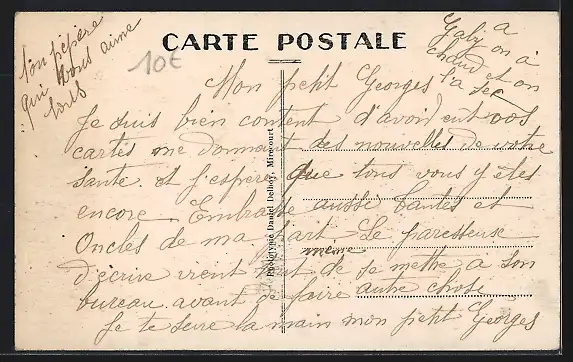 CARTE POSTALE
10€
Ton pépère
qui vous aime
tous
Gaby a
chaud on a
et on
l'a sec
Mon petit Georges
Je suis bien content d'avoir eut vos
cartes me donnant des nouvelles de votre
santé. et j'espère que tous vous y êtes
encore. Embrasse aussi Tantes et
Oncles de ma part. Le paresseuse
même
d'écrire vient tout de se mettre a son
bureau avant de faire autre chose
Je te serre la main mon petit Georges
Phototypie Daniel Delboy, Mirecourt